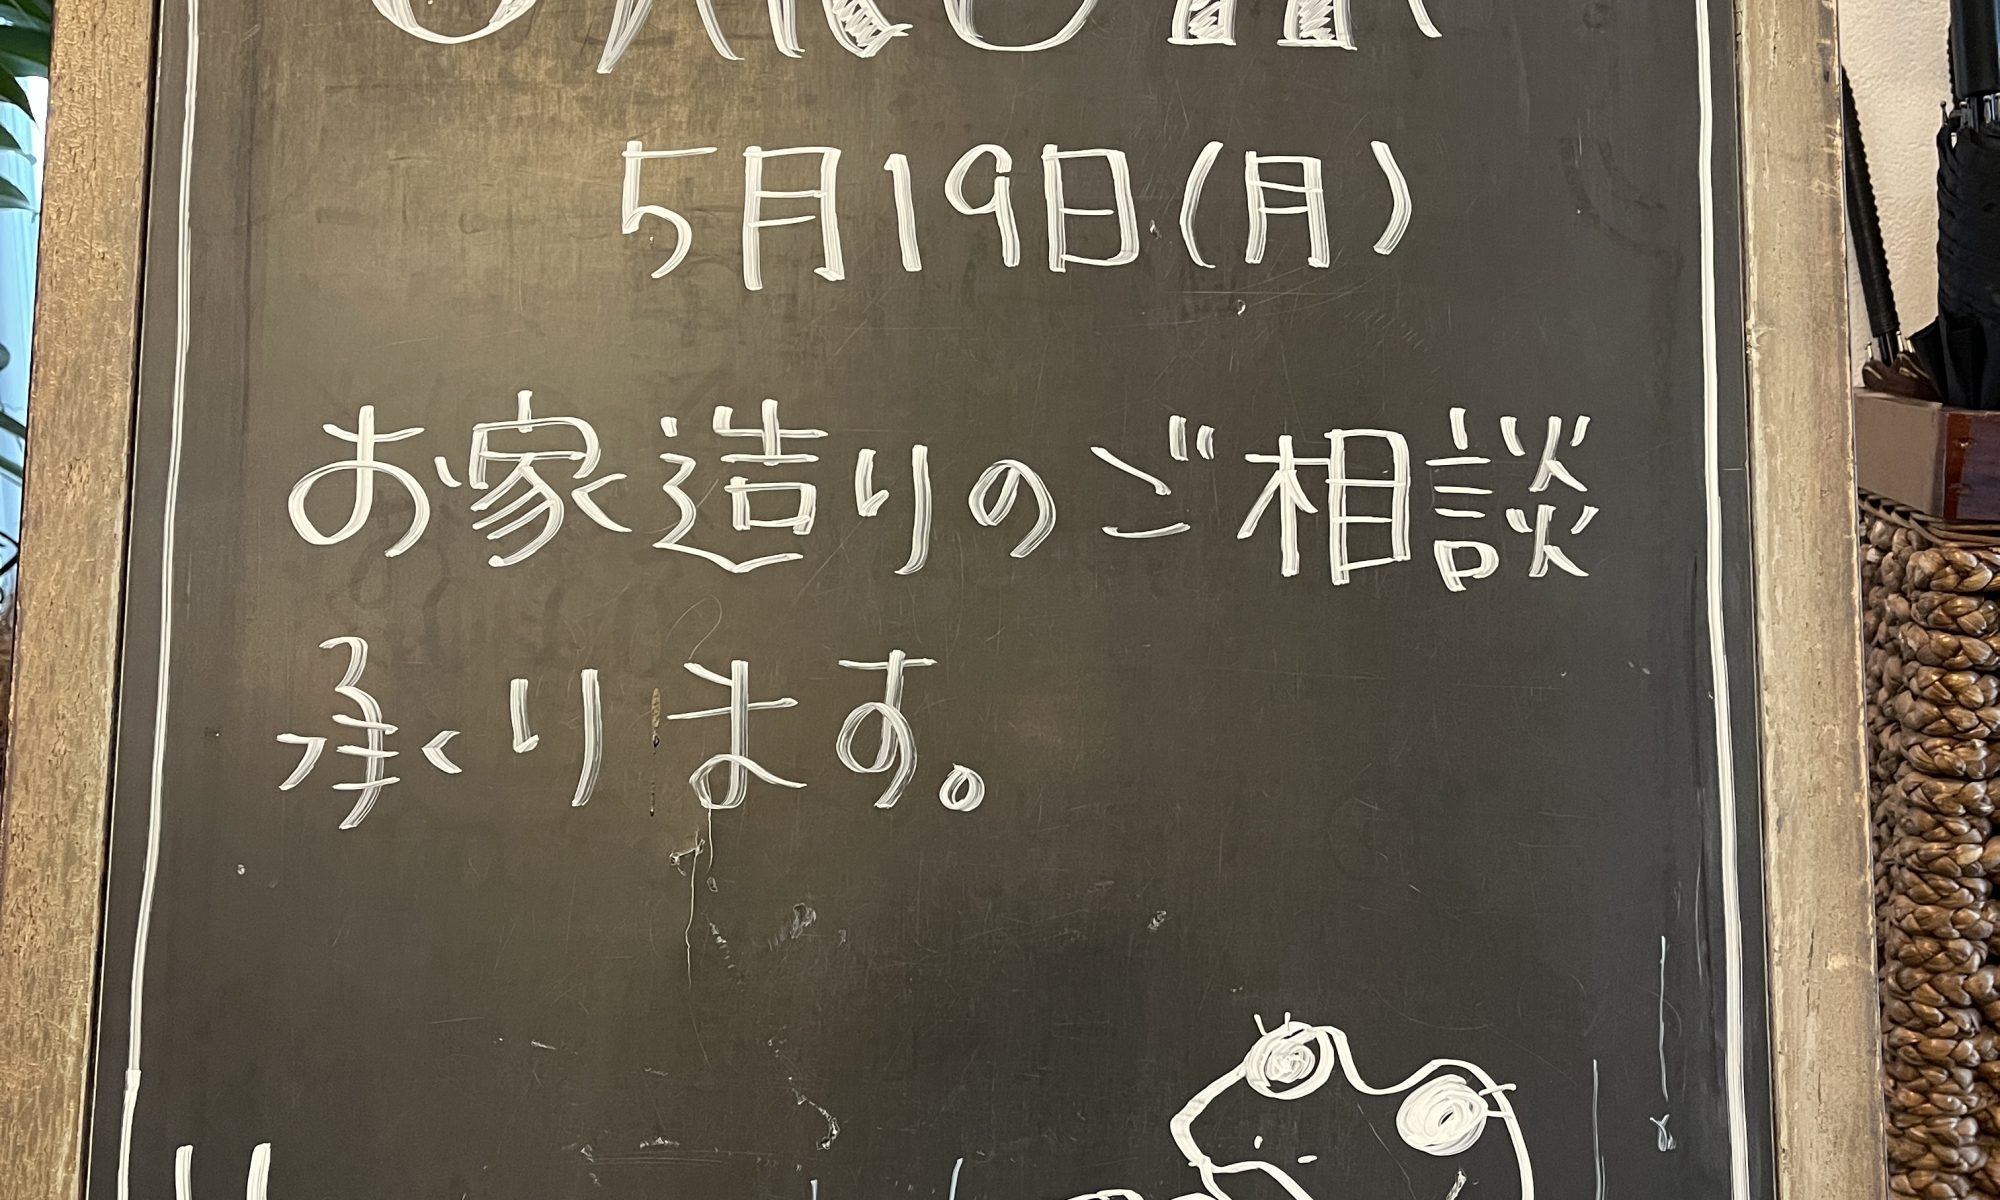 5月19日(月)
お家造りのご相談
承ります。